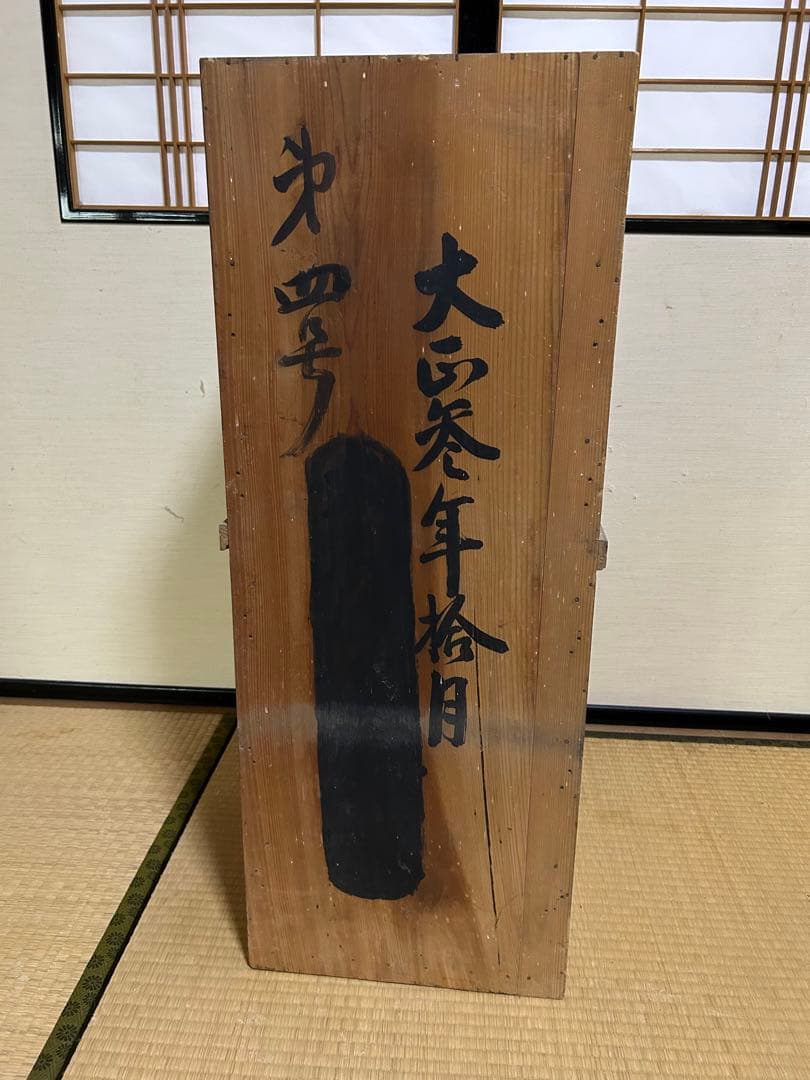 大正参年拾月
第四号